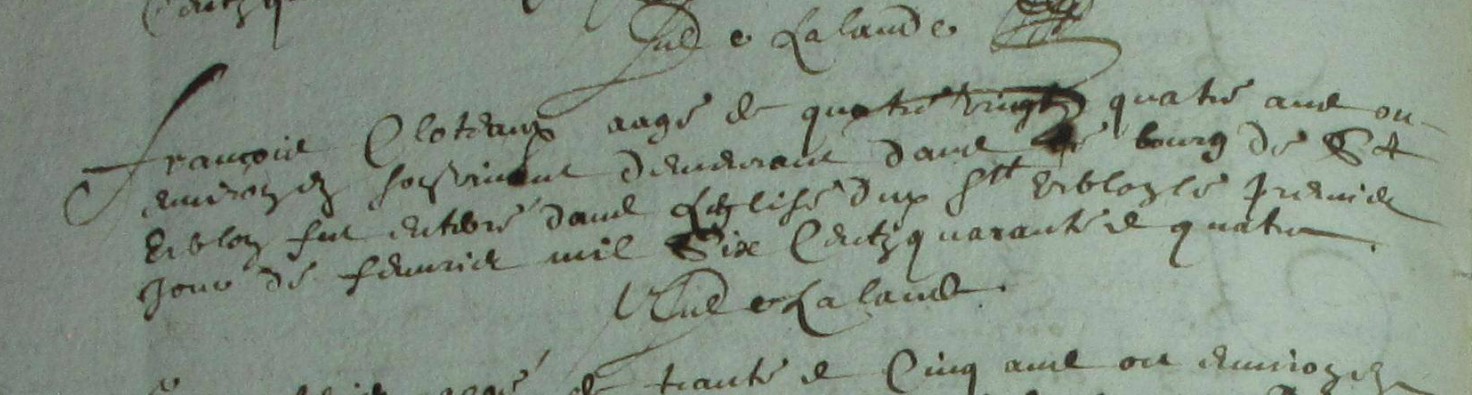 Centz
Jude Lalande
Francoise Cloteaux aage de quatre vingtz quatre ans ou
environ demeurant dans le bourg de St
Erblon fut enterré dans L'eglise dud St Erblon le premier
jour de febvrier mil Six Centz quarante et quatre
Jude Lalande
aagé de trante et Cinq ans ou environ